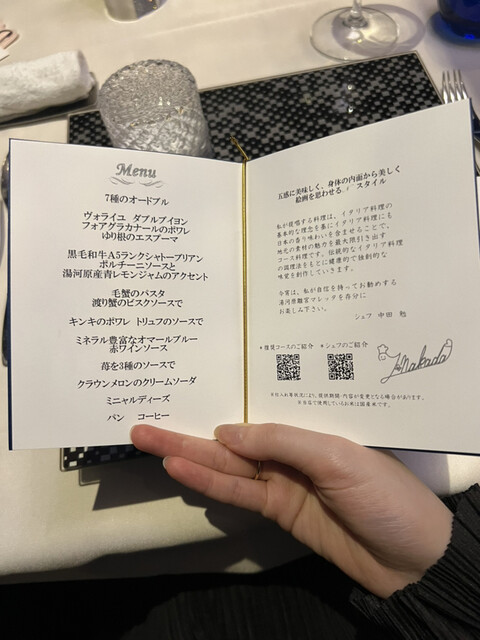 Menu
7種のオードブル
ヴォライユ ダブルブイヨン
フォアグラカナールのポワレ
ゆり根のエスプーマ
黒毛和牛A5ランクシャトーブリアン
ポルチーニソースと
湯河原産青レモンジャムのアクセント
毛蟹のパスタ
渡り蟹のビスクソースで
キンキのポワレ トリュフのソースで
ミネラル豊富なオマールブルー
赤ワインソース
苺を3種のソースで
クラウンメロンのクリームソーダ
ミニャルディーズ
パン コーヒー
五感に美味しく、身体の内面から美しく
絵画を思わせる スタイル
私が提唱する料理は、イタリア料理の
基本的な理念を軸にイタリア料理にも
日本の香り味わいを含ませることで、
地元の素材の魅力を最大限引き出す
コース料理です。伝統的なイタリア料理
の調理法をもとに健康的で独創的な
味覚を創作していきます。
今宵は、私が自信を持ってお勧めする
湯河原離宮マレッタを存分に
お楽しみ下さい。
シェフ 中田 勉
*推奨コースのご紹介 *シェフのご紹介
Nakada
※仕入れ等状況により、提供期間・内容が変更となる場合があります。
※当店で使用しているお米は国産米です。